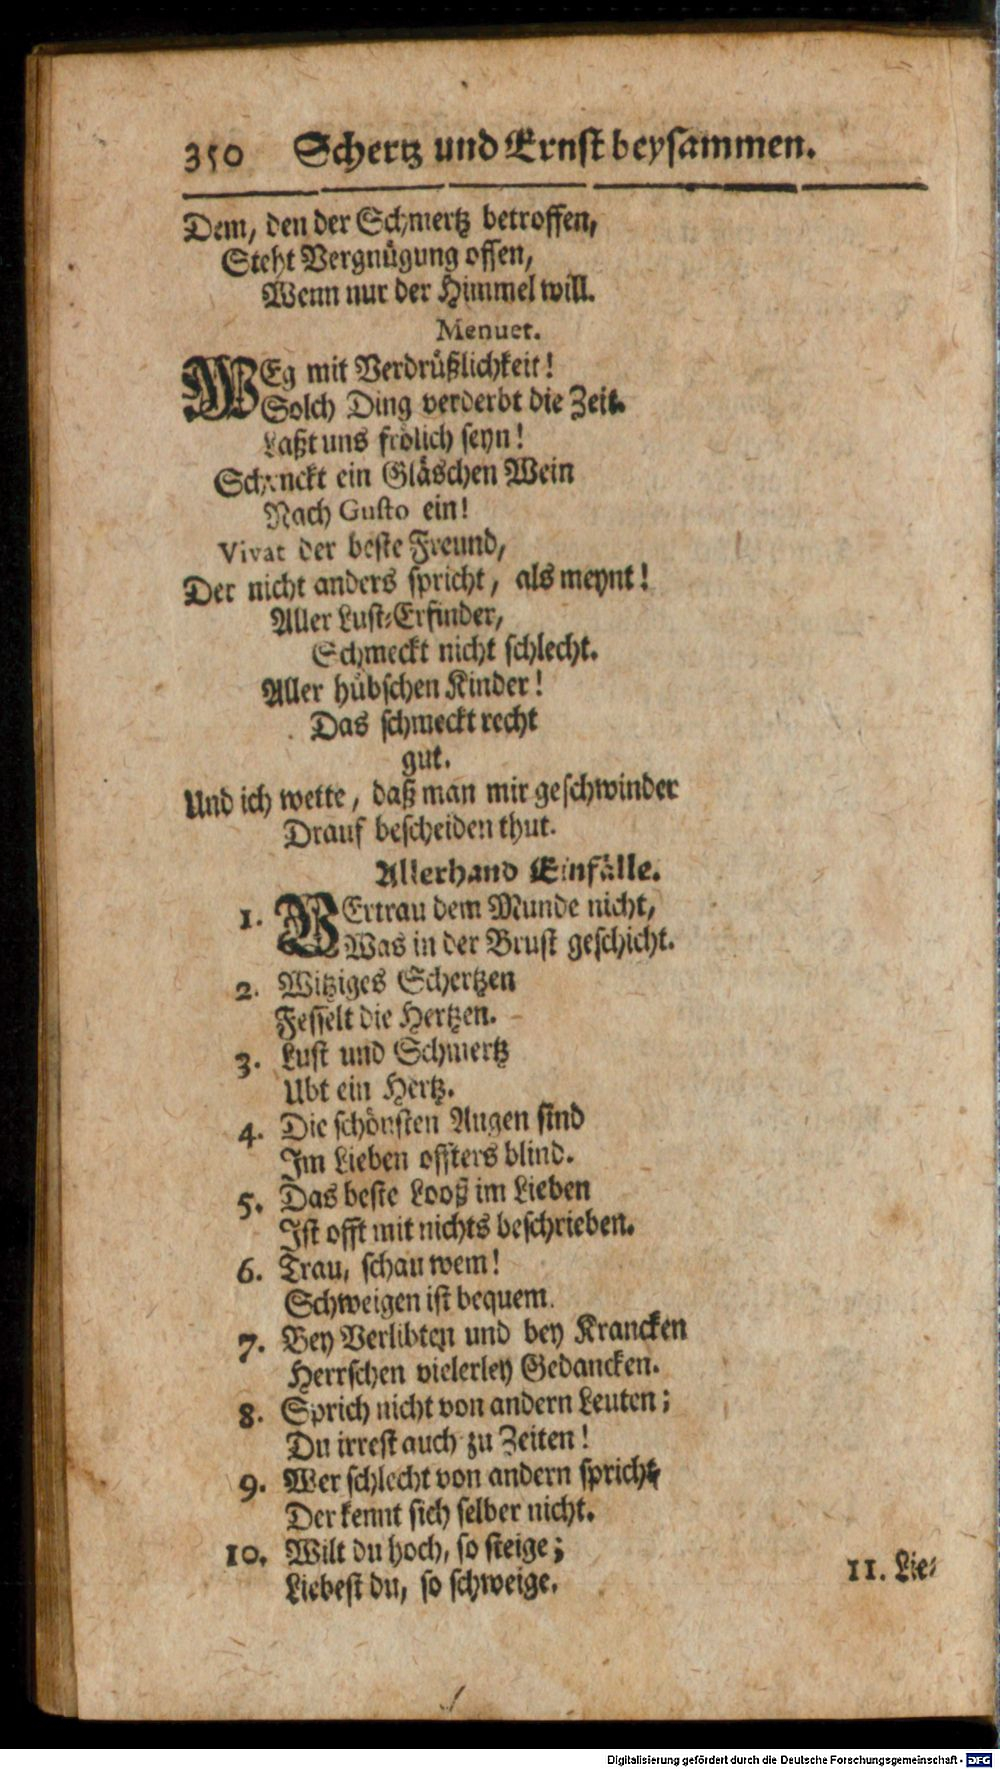 350 Schertz und Ernst beysammen.
Dem, den der Schmertz betroffen,
Steht Vergnügung offen,
Wenn nur der Himmel will.
Menuet.
WEg mit Verdrüßlichkeit!
Solch Ding verderbt die Zeit.
Laßt uns frölich seyn!
Schenckt ein Gläschen Wein
Nach Gusto ein!
Vivat der beste Freund,
Der nicht anders spricht, als meynt!
Aller Lust-Erfinder,
Schmeckt nicht schlecht.
Aller hübschen Kinder!
Das schmeckt recht
gut.
Und ich wette, daß man mir geschwinder
Drauf bescheiden thut.
Allerhand Einfälle.
1. VErtrau dem Munde nicht,
Was in der Brust geschicht.
2. Witziges Schertzen
Fesselt die Hertzen.
3. Lust und Schmertz
Ubt ein Hertz.
4. Die schönsten Augen sind
Im Lieben offters blind.
5. Das beste Looß im Lieben
Ist offt mit nichts beschrieben.
6. Trau, schau wem!
Schweigen ist bequem.
7. Bey Verlibten und bey Krancken
Herrschen vielerley Gedancken.
8. Sprich nicht von andern Leuten;
Du irrest auch zu Zeiten!
9. Wer schlecht von andern spricht,
Der kennt sich selber nicht.
10. Wilt du hoch, so steige;
Liebest du, so schweige.
11. Lie-
Digitalisierung gefördert durch die Deutsche Forschungsgemeinschaft - DFG